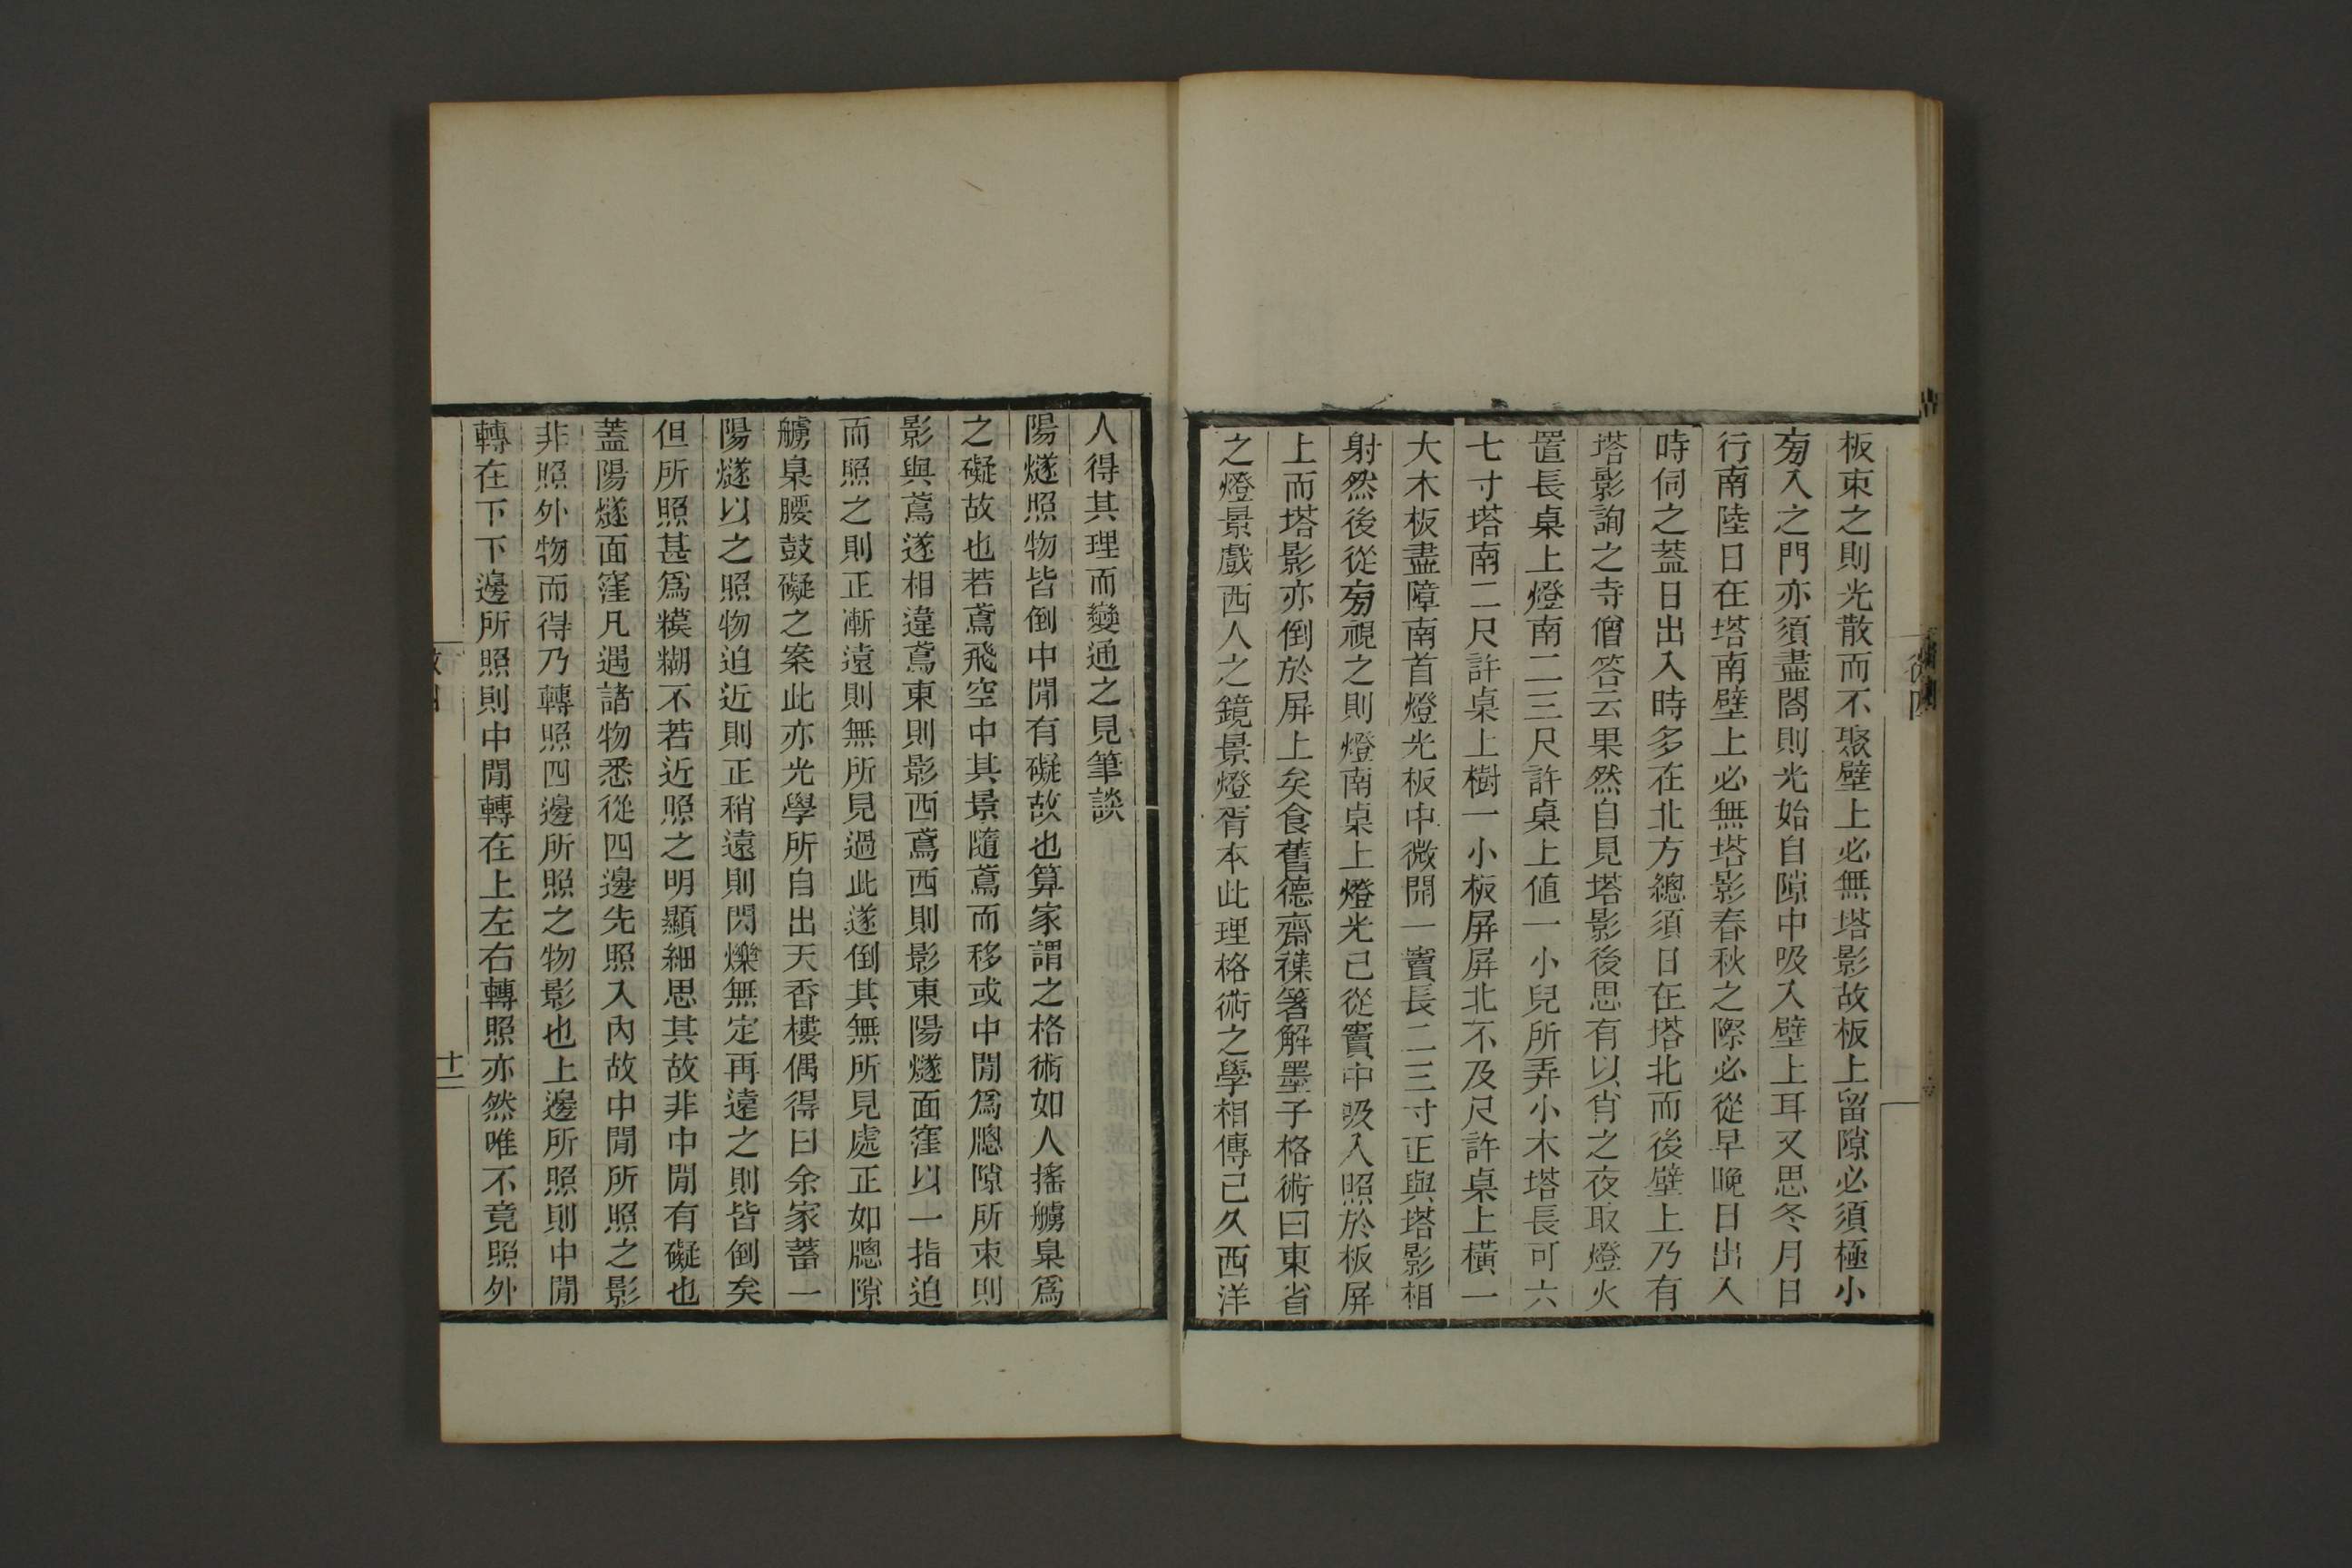 板束之則光散而不聚壁上必無塔影故板上留隙必須極小
旁入之門亦須盡閤則光始自隙中吸入壁上耳又思冬月日
行南陸日在塔南壁上必無塔影春秋之際必從早晚日出入
時伺之葢日出入時多在北方總須日在塔北而後壁上乃有
塔影詢之寺僧答云果然自見塔影後思有以肖之夜取燈火
置長桌上燈南二三尺許桌上値一小兒所弄小木塔長可六
七寸塔南二尺許桌上樹一小板屏屏北不及尺許桌上橫一
大木板盡障南首燈光板中微開一竇長二三寸正與塔影相
射然後從旁視之則燈南桌上燈光已從竇中吸入照於板屏
上而塔影亦倒於屏上矣食舊德齋襍箸解墨子格術曰東省
之燈景戲西人之鏡景燈胥本此理格術之學相傳已久西洋
人得其理而變通之見筆談
陽燧照物皆倒中閒有礙故也算家謂之格術如人搖艣臬爲
之礙故也若鳶飛空中其景隨鳶而移或中閒爲牕隙所束則
影與鳶遂相違鳶東則影西鳶西則影東陽燧面窪以一指迫
而照之則正漸遠則無所見過此遂倒其無所見處正如牕隙
艣臬腰鼓礙之案此亦光學所自出天香樓偶得曰余家蓄一
陽燧以之照物迫近則正稍遠則閃爍無定再遠之則皆倒矣
但所照甚爲糢糊不若近照之明顯細思其故非中閒有礙也
葢陽燧面窪凡遇諸物悉從四邊先照入內故中閒所照之影
非照外物而得乃轉照四邊所照之物影也上邊所照則中閒
轉在下下邊所照則中閒轉在上左右轉照亦然唯不竟照外
十二